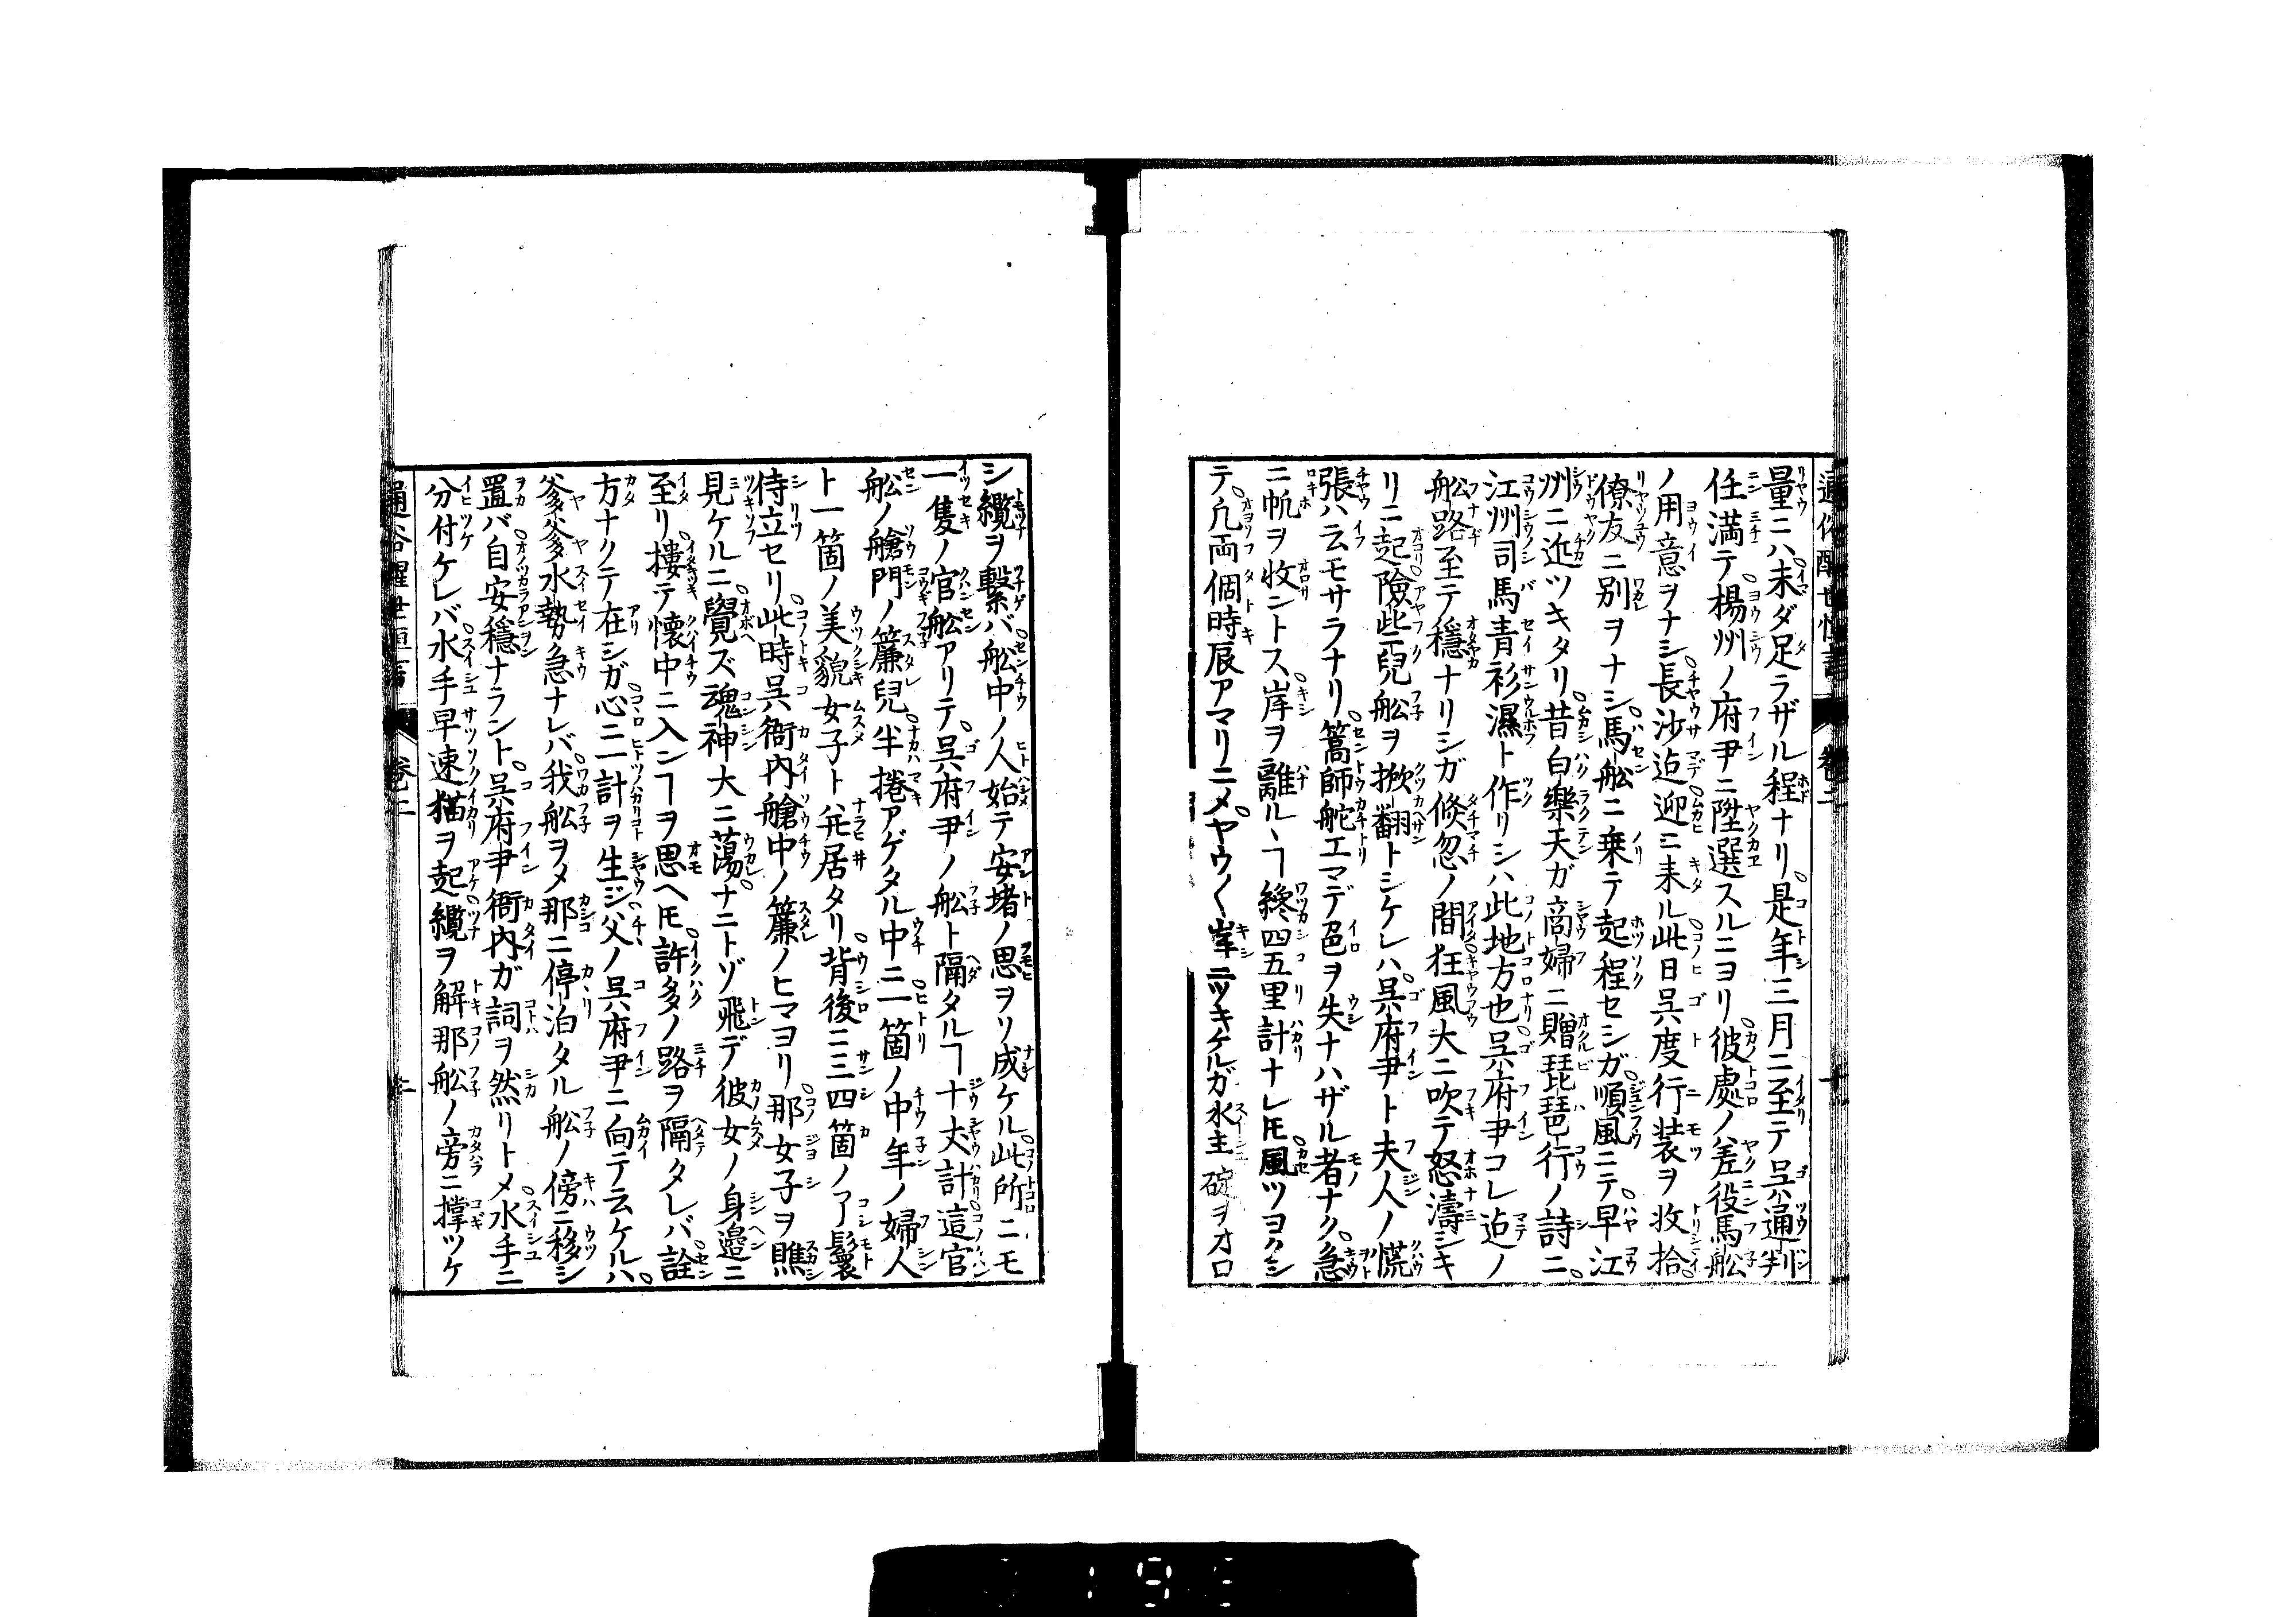 量ニハ未ダ足ラザル程ナリ。是年三月ニ至テ呉通判
任満テ。揚州ノ府尹ニ陞選スルニヨリ。彼處ノ差役馬舩
ノ用意ヲナシ。長沙迠迎ニ来ル。此日呉度行装ヲ收拾。
僚友ニ別ヲナシ。馬舩ニ乗テ起程セシガ。順風ニテ。早江
州ニ近ツキタリ。昔白樂天ガ商婦ニ贈琵琶行ノ詩ニ。
江州司馬青衫濕ト作リシハ此地方也。呉府尹コレ迠ノ
舩路至テ穩ナリシガ倏忽ノ間。狂風大ニ吹テ怒濤シキ
リニ起。險些兒舩ヲ掀翻トシケレハ。呉府尹ト夫人ノ慌
張ハ云モサラナリ。篙師舵工マデ色ヲ失ナハザル者ナク。急
ニ帆ヲ收ントス。岸ヲ離ルヽヿ纔四五里計ナレ𪜈。風ツヨクシ
テ。凢両個時辰アマリニメ。ヤウ〱岸ニツキケルガ水主碇ヲオロ
シ纜ヲ繋バ。舩中ノ人始テ安堵ノ思ヲソ成ケル。此所ニモ
一隻ノ官舩アリテ。呉府尹ノ舩ト隔タルヿ十丈計。這官
舩ノ艙門ノ簾兒。半捲アゲタル中ニ。一箇ノ中年ノ婦人
ト一箇ノ美貌女子ト𪜈居タリ。背後ニ三四箇ノ了鬟
侍立セリ。此時呉衙内艙中ノ簾ノヒマヨリ。那女子ヲ瞧
見ケルニ。覺ズ魂神大ニ蕩。ナニトゾ飛デ彼女ノ身邉ニ
至リ。摟テ懷中ニ入ンヿヲ思ヘ𪜈。許多ノ路ヲ隔タレバ。詮
方ナクテ在シガ。心ニ一計ヲ生ジ。父ノ呉府尹ニ向テ云ケルハ。
爹爹水勢急ナレバ。我舩ヲメ那ニ停泊タル舩ノ傍ニ移シ
置バ。自安穩ナラント。呉府尹衙内ガ詞ヲ然リトメ。水手ニ
分付ケレバ。水手早速猫ヲ起。纜ヲ解那舩ノ旁ニ撑ツケ
通俗醒世恒言 卷二